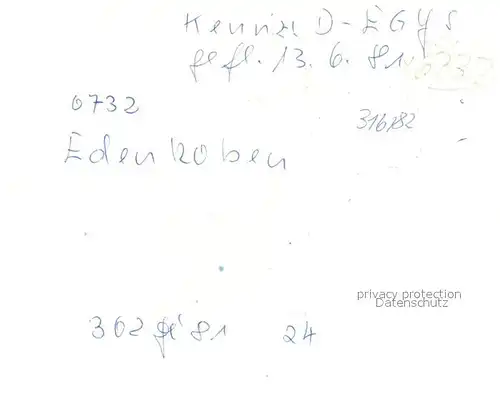 Kennz. D-EGYS
gefl. 13. 6. 81
0732
316/82
Edenkoben
privacy protection
Datenschutz
302 81 24